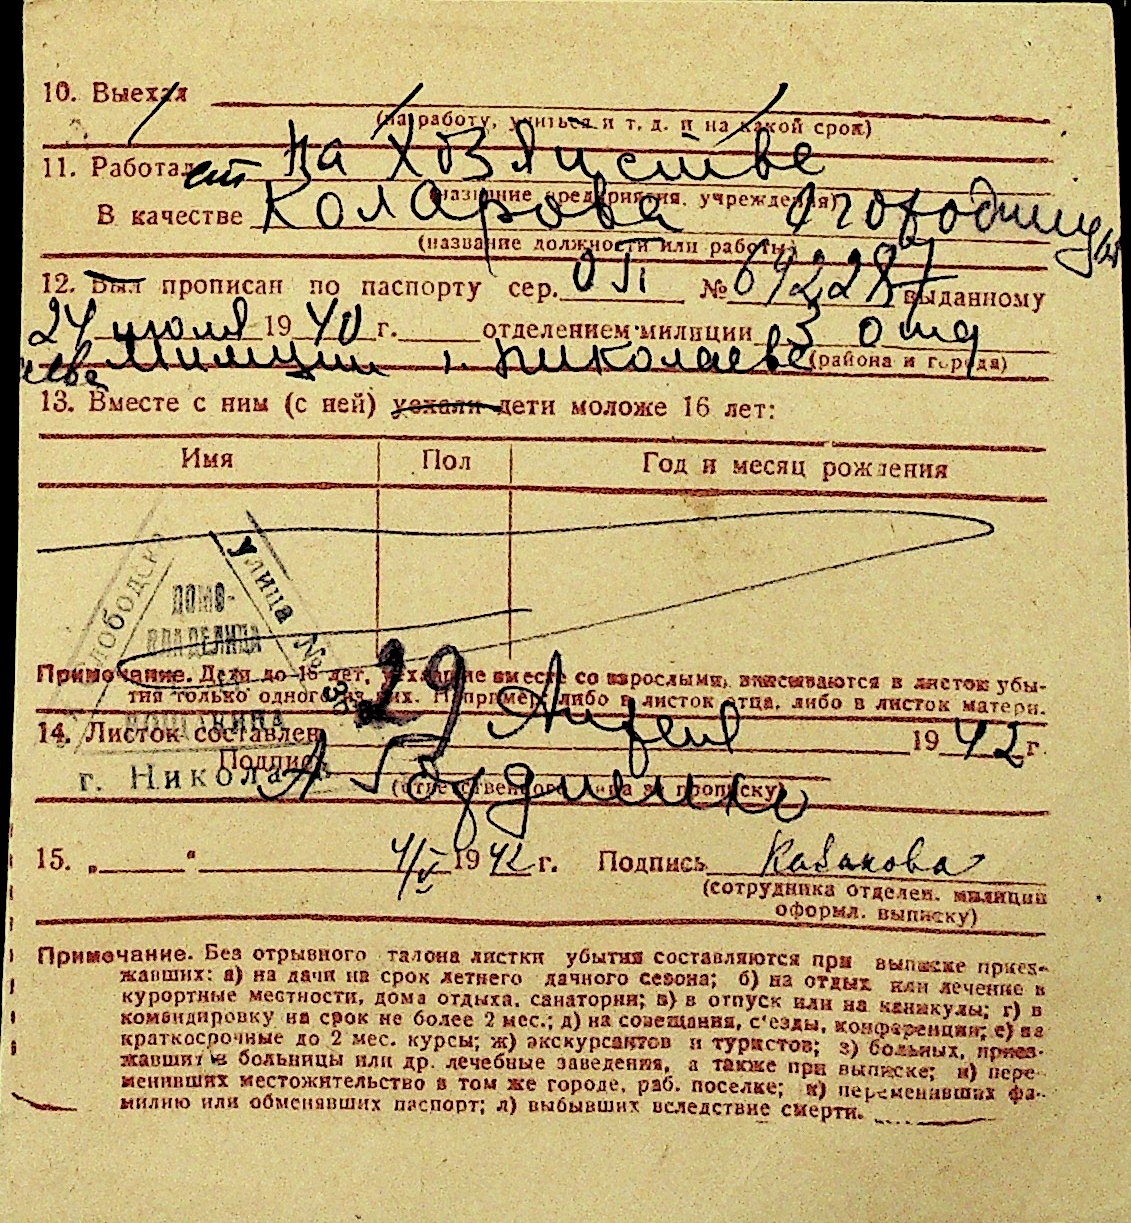 10. Выехал
(на работу, учиться и т. д. и на какой срок)
11. Работает на хозяистве
(название предприятия, учреждения)
В качестве Коларова огородниц
(название должности или работы)
12. Был прописан по паспорту сер. ОП № 692287 выданному
24 июля 19 40 г. отделением милиции 3 отд
Милиции г. Николаеве (района и города)
13. Вместе с ним (с ней) уехали дети моложе 16 лет:
Имя Пол Год и месяц рождения
Слободская улица №
ДОМО-
ВЛАДЕЛИЦА
г. Никола
Примечание. Дети до 16 лет, уехавшие вместе со взрослыми, вписываются в листок убы-
тия только одного из них. Например, либо в листок отца, либо в листок матери.
14. Листок составлен 29 Апрел 19 42 г.
Подпись
(ответственного лица за прописку)
15. „ “ 4/V 19 42 г. Подпись Казакова
(сотрудника отделен. милиции
оформл. выписку)
Примечание. Без отрывного талона листки убытия составляются при выписке приез-
жавших: а) на дачи на срок летнего дачного сезона; б) на отдых или лечение в
курортные местности, дома отдыха, санатории; в) в отпуск или на каникулы; г) в
командировку на срок не более 2 мес.; д) на совещания, с'езды, конференции; е) на
краткосрочные до 2 мес. курсы; ж) экскурсантов и туристов; з) больных, приез-
жавших в больницы или др. лечебные заведения, а также при выписке; и) пере-
менивших местожительство в том же городе, раб. поселке; к) переменивших фа-
милию или обменявших паспорт; л) выбывших вследствие смерти.